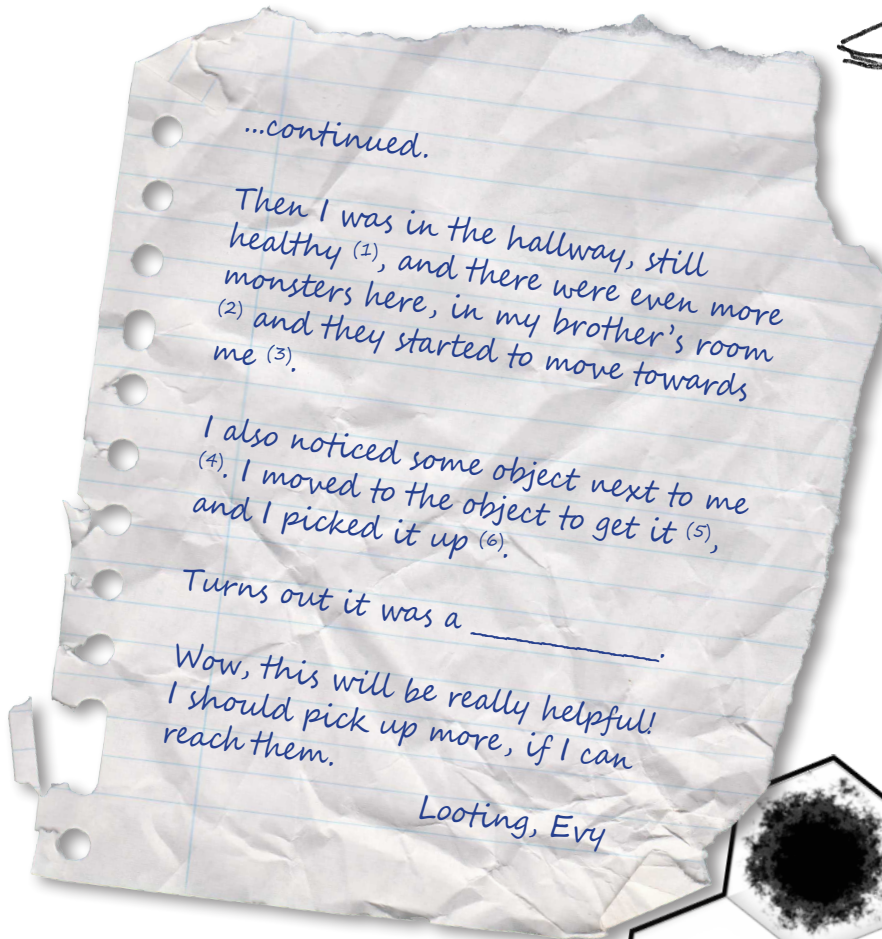 ...continued.
Then I was in the hallway, still
healthy (1), and there were even more
monsters here, in my brother's room
(2) and they started to move towards
me (3).
I also noticed some object next to me
(4). I moved to the object to get it (5),
and I picked it up (6).
Turns out it was a ____________.
Wow, this will be really helpful!
I should pick up more, if I can
reach them.
Looting, Evy